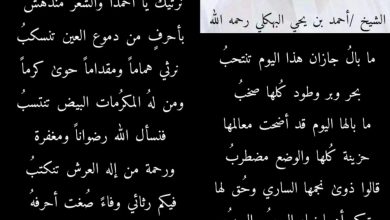 الشيخ /أحمد بن يحي البهكلي رحمه الله
ما بالُ جازان هذا اليوم تنتحبُ
بحر وبر وطود كُلها صخبُ
ما بالها اليوم قد أضحت معالمها
حزينة كلها والوضع مضطربُ
قالوا ذوىٰ نجمها الساري وحُق لها
نرثيك يا أحمداً والشعر مندهش
بأحرفٍ من دموع العين تنسكبُ
نرثي هماماً ومقداماً حوىٰ كرماً
ومن لهُ المكرُمات البيض تنتسبُ
فنسأل الله رضواناً ومغفرة
ورحمة من إله العرش تنكتبُ
فيكم رثائي وفاءً صُغت أحرفهُ